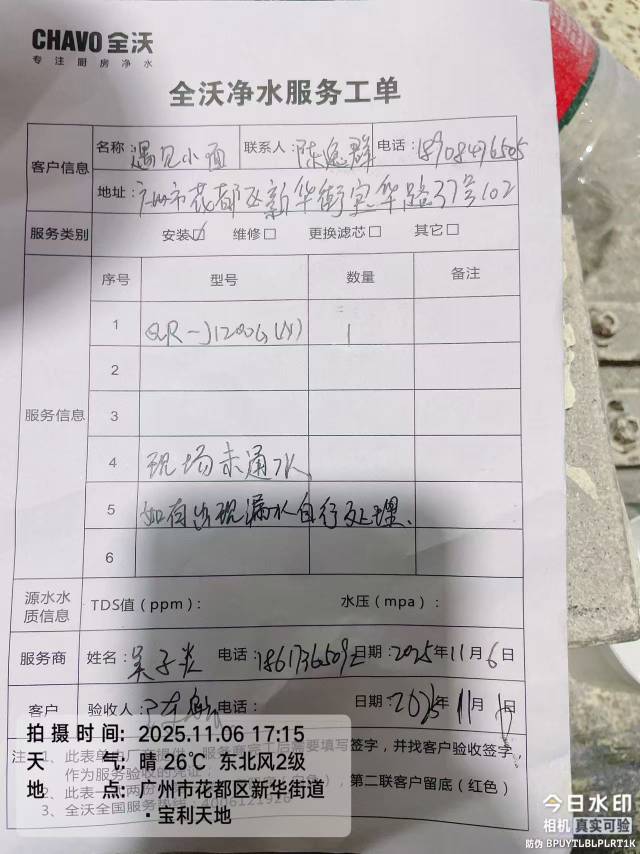 CHAVO 全沃
专注厨房净水
全沃净水服务工单
客户信息
名称: 遇见小面 联系人: 陈 群 电话:
地址: 广州市花都区新华街宝华路37号102
服务类别 安装☑ 维修□ 更换滤芯□ 其它□
服务信息
序号 型号 数量 备注
1 QR-J1200G(X) 1
2
3
4 现场未通水
5 如有出现漏水自行处理、
6
源水水质信息 TDS值(ppm): 水压(mpa):
服务商 姓名: 吴子炎 电话: 日期: 2025年11月6日
客户 验收人: 电话: 日期: 2025年11月 日
注
签字,并找客户验收签字
作为服务验收的凭证
第二联客户留底(红色)
3、全沃全国服务热线
拍摄时间: 2025.11.06 17:15
天气: 晴 26℃ 东北风2级
地点: 广州市花都区新华街道
·宝利天地
今日水印
相机 真实可验
防伪 BPUYTLBLPLRT1K